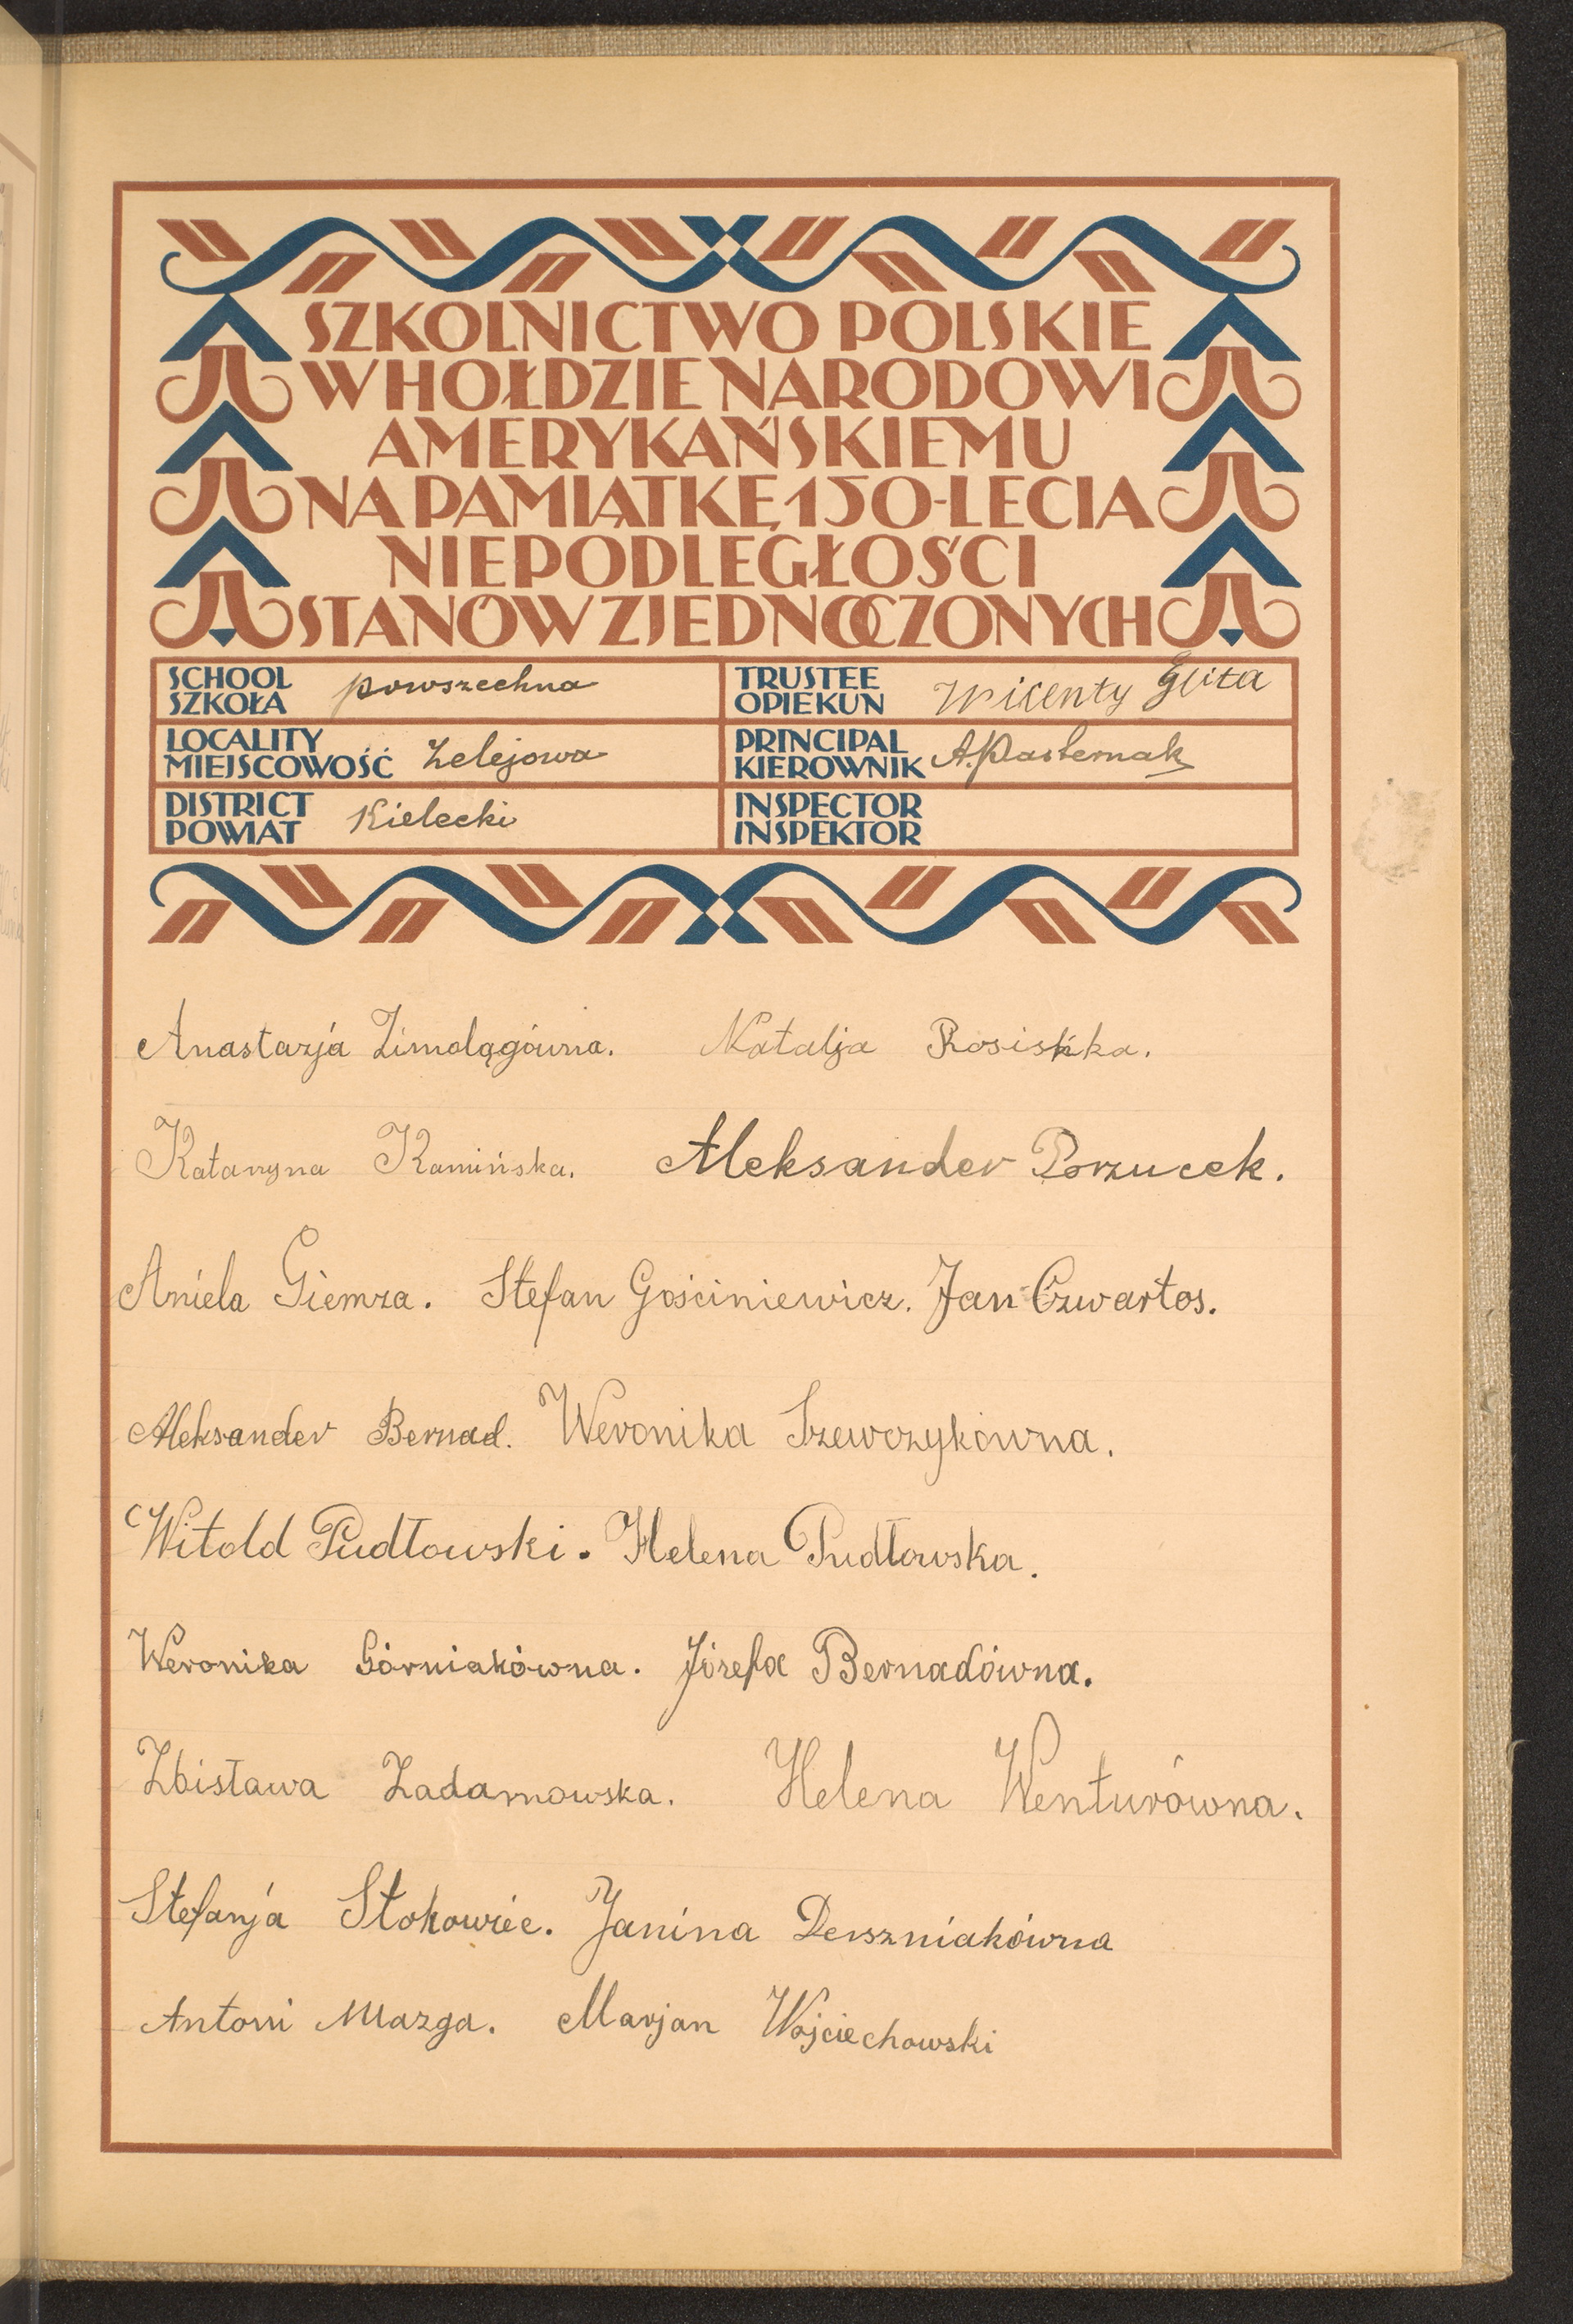 SZKOLNICTWO POLSKIE
W HOŁDZIE NARODOWI
AMERYKAŃSKIEMU
NA PAMIĄTKĘ 150-LECIA
NIEPODLEGŁOŚCI
STANÓW ZJEDNOCZONYCH
SCHOOL
SZKOŁA powszechna
TRUSTEE
OPIEKUN Wicenty Glita
LOCALITY
MIEJSCOWOŚĆ Zelejowa
PRINCIPAL
KIEROWNIK A. Pasternak
DISTRICT
POWIAT Kielecki
INSPECTOR
INSPEKTOR
Anastazja Zimolągówna. Natalja
Katarzyna Kamińska. Aleksander Porzucek.
Aniela Giemza. Stefan Gościniewicz. Jan Czwartos.
Aleksander Bernad. Weronika Szewczykówna.
Witold Pudłowski. Helena Pudłowska.
Weronika Górniakówna. Józefa Bernadówna.
Zbisława Zadarnowska. Helena Wenturówna.
Stefanja Stokowiec. Janina Derszniakówna
Antoni Mazga. Marjan Wojciechowski